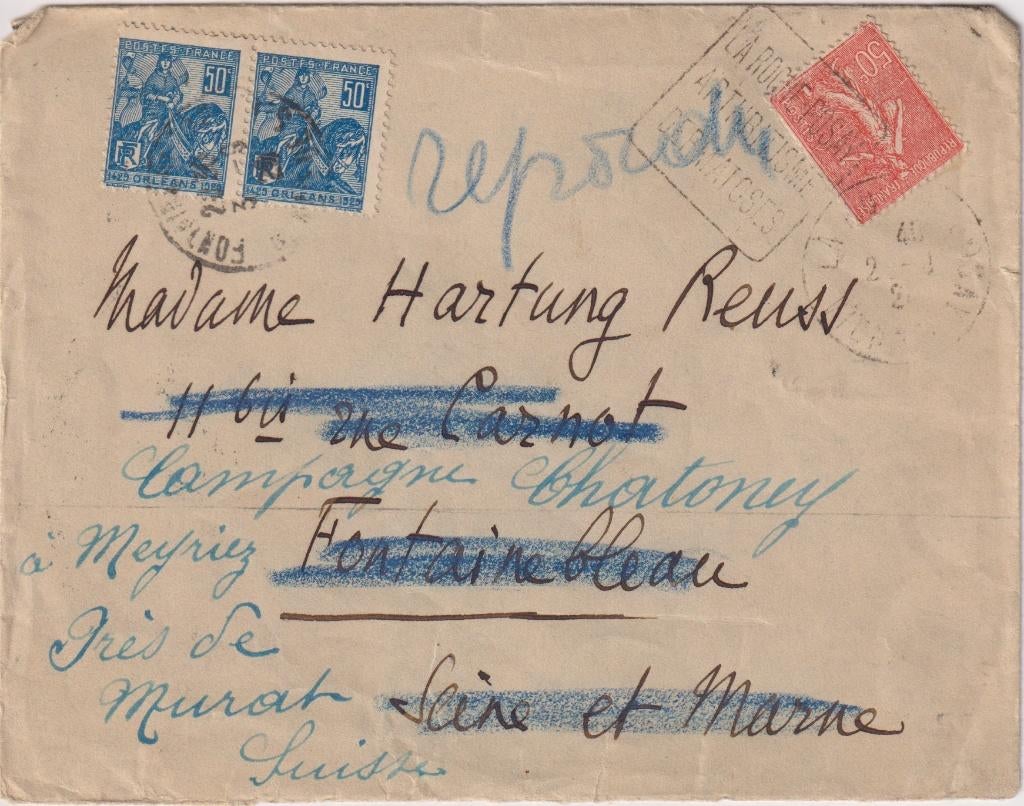 POSTES-FRANCE
50c
RF
1429 ORLÉANS 1929
POSTES-FRANCE
50c
RF
1429 ORLÉANS 1929
50c
RÉPUBLIQUE FRANÇAISE
LA ROCHE-POSAY
ARTHRITISME
DERMATOSES
repondu
Madame Hartung Reuss
11 bis rue Carnot
Campagne Chatoney
Fontainebleau
à Meyriez
Près de
Murat
Seine et Marne
Suisse